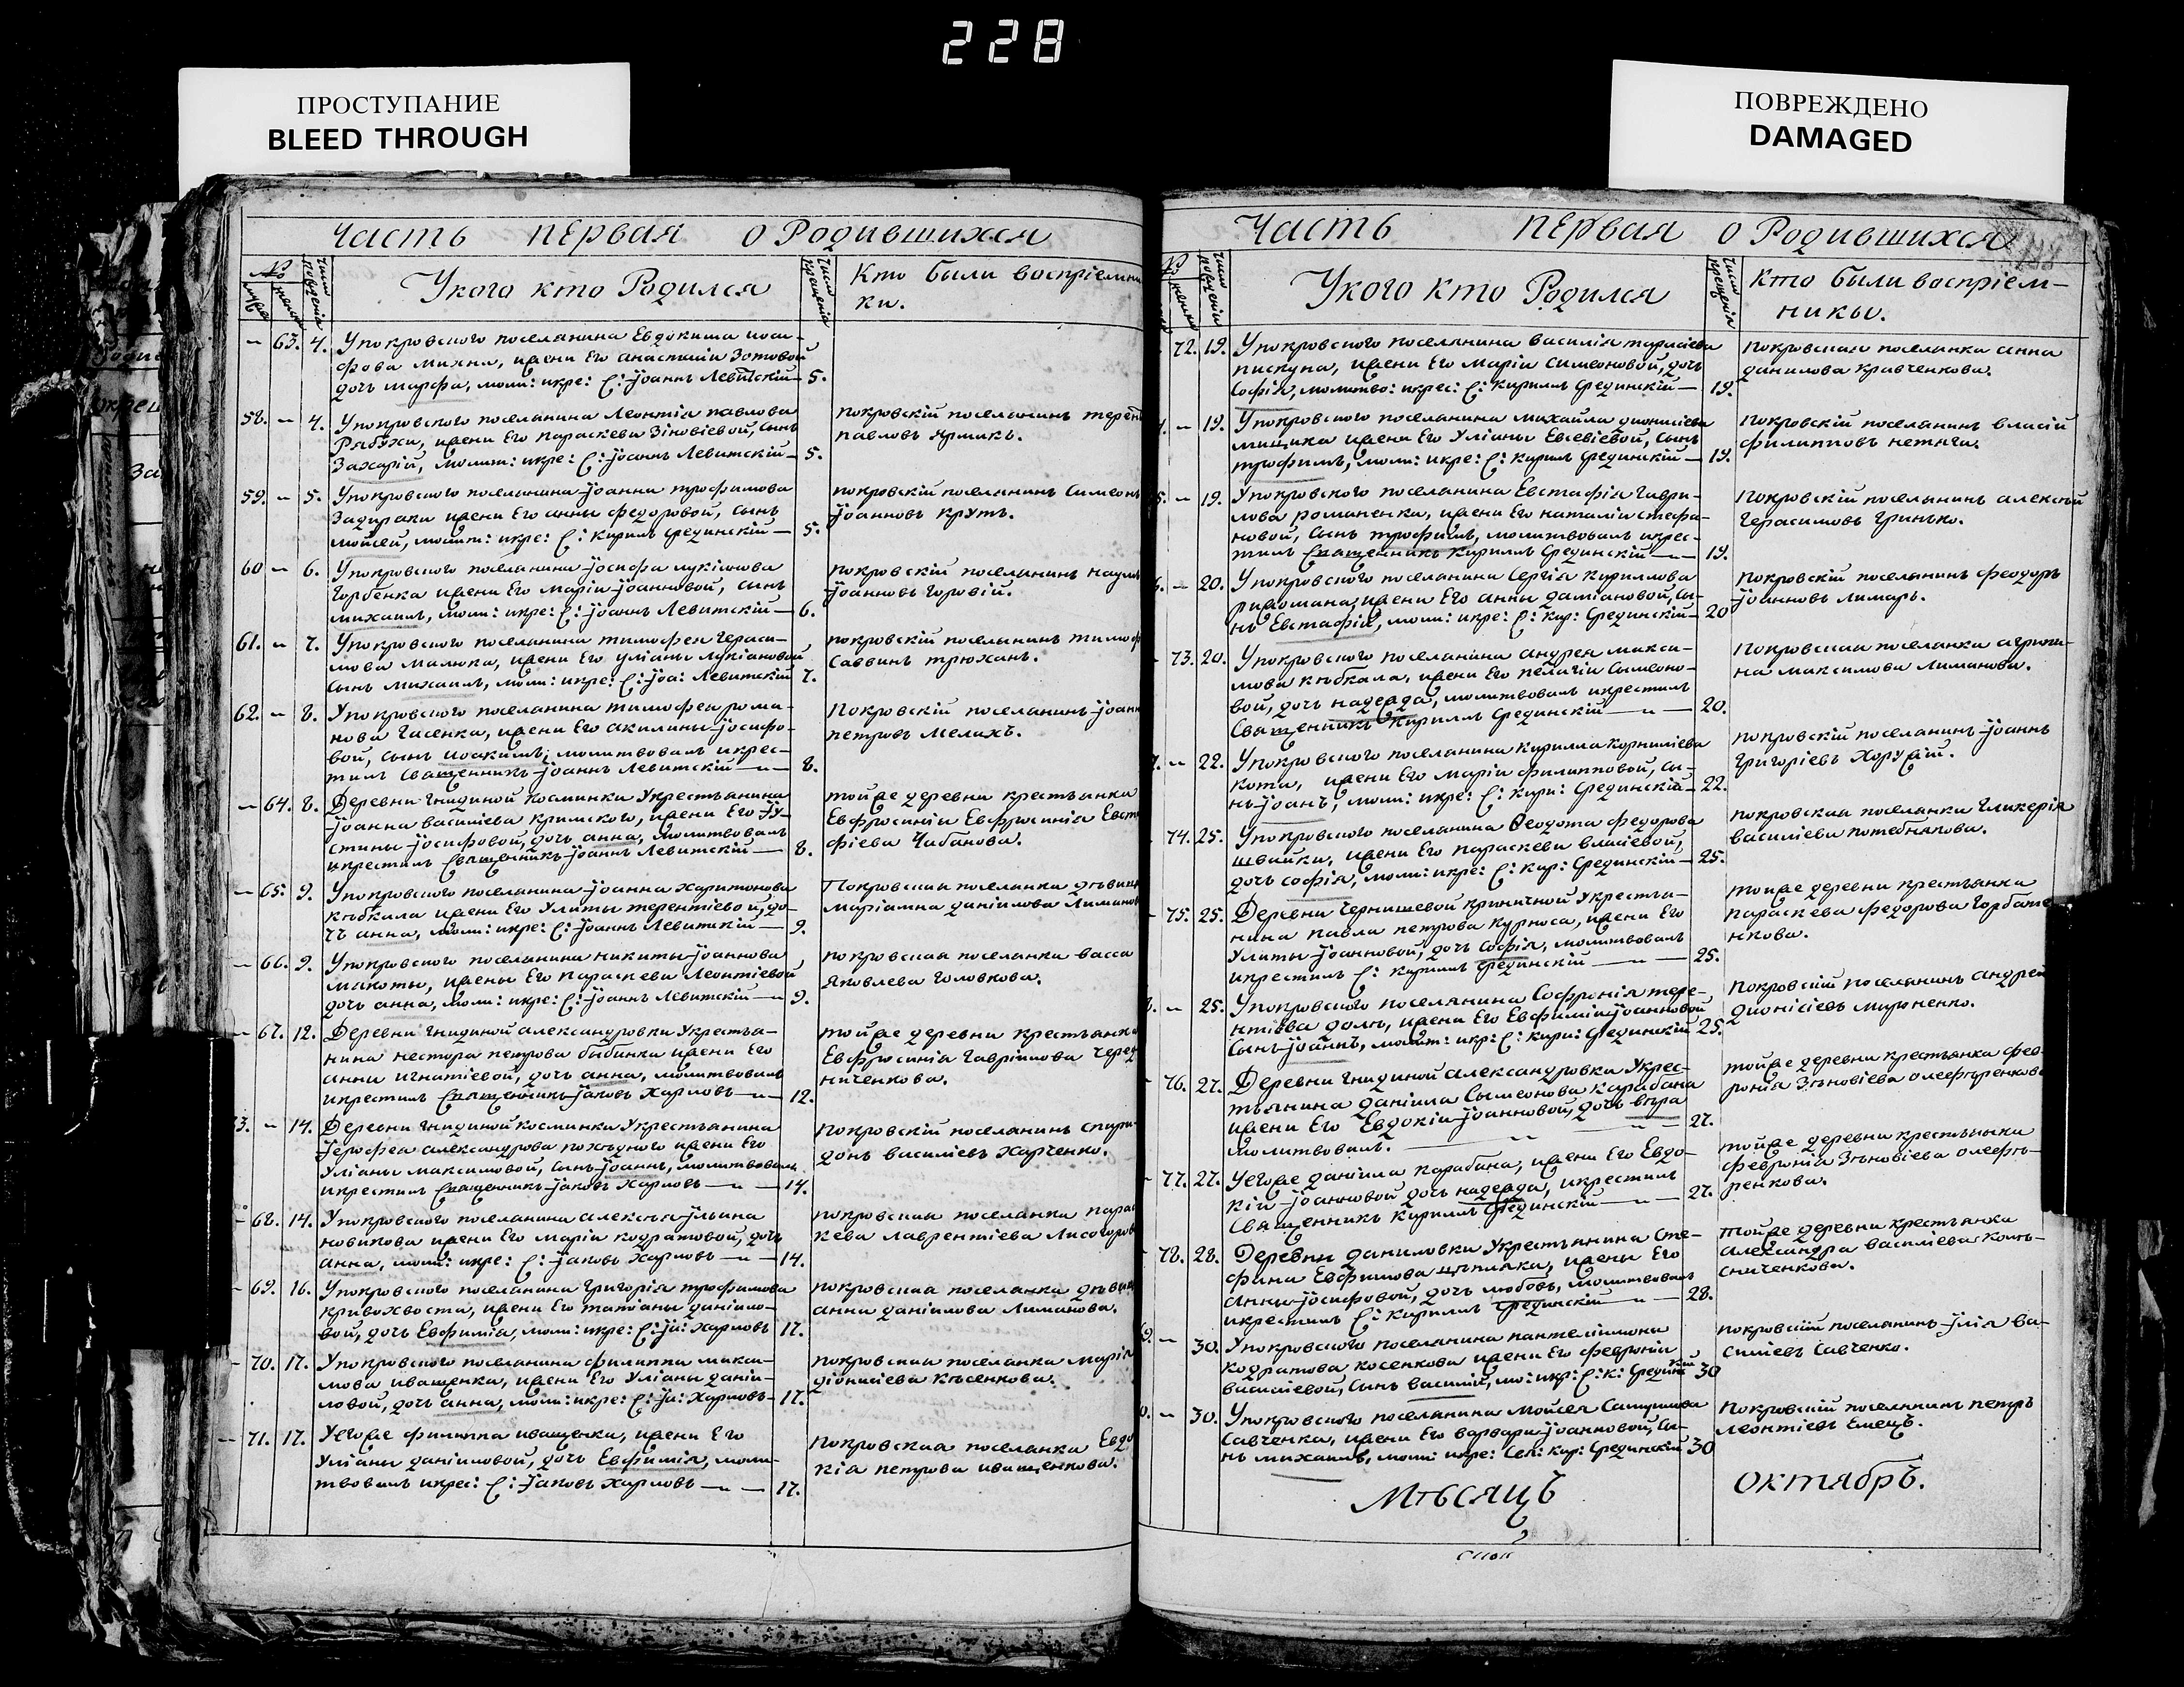 228
ПРОСТУПАНИЕ
BLEED THROUGH
ПОВРЕЖДЕНО
DAMAGED
Часть первая о Родившихся
№
Укого кто Родился
Кто были воспріемни
ки.
— 63. 4. Упокровского поселянина Евдокима иоси-
фова михня, иҗены Его анастасіи Зотовой
дочь марфа, моли: икре: С: Іоаннъ Левитскій — 5.
58. — 4. Упокровского поселянина Леонтія павлова
Рябухи, ижены Его параскевы Зіновіевой, сынъ
Захарій, молит: икре: С: Іоаннъ Левитскій — 5.
покровскій поселянинъ терен
павловъ Ярмикъ.
59. — 5. Упокровского поселянина Іоанна трофимова
Задираки ижены Его анны федоровой, сынъ
мойсей, молит: икре: С: кирилъ Срединскій — 5.
покровскій поселянинъ Симеонъ
Іоанновъ крутъ.
60 — 6. Упокровского поселянина Іосифа лукіянова
Горбенка ижены Его маріи Іоанновой, сынъ
михаилъ, моли: икре: С: Іоаннъ Левитскій — 6.
покровскій поселянинъ наумъ
Іоанновъ Горовій.
61. — 7. Упокровского поселянина тимофея Гераси-
мова малюка, ижены Его уліаны лукіановой
сынъ михаилъ, моли: икре: С: Іоа: Левитскій 7.
покровскій поселянинъ тимоф
Саввинъ трюханъ.
62. — 8. Упокровского поселянина тимофея рома-
нова Гасенка, ижены Его акилины Іосифо-
вой, сынъ иоакимъ, молитвовалъ икрес-
тилъ Священникъ Іоаннъ Левитскій — 8.
покровскій поселянинъ Іоанн
петровъ мелихъ.
— 64. 8. Деревни Гнидиной косминки Укрестьянина
Іоанна василіева кримского, ижены Его Іу-
стины Іосифовой, дочь анна, молитвовалъ
икрестилъ Священникъ Іоаннъ Левитскій — 8.
тойже деревни крестьянка
Евфросинія Евфросинія Евст
фіева Чабанова.
— 65. 9. Упокровского поселянина Іоанна харитонова
кѣбкала ижены Его Улиты терентіевой, до-
чь анна, моли: икре: С: Іоаннъ Левитскій — 9.
Покровская поселянка дѣвица
Маріамна даніилова Лиманов
— 66. 9. Упокровского поселянина никиты Іоаннова
макоты, ижены Его параскева Леонтіевой
дочь анна, моли: икре: С: Іоаннъ Левитскій — 9.
покровская поселянка васса
Яковлева Головкова.
— 67. 12. Деревни Гнидиной александровки Укрестья-
нина нестора петрова бибика ижены Его
анны игнатіевой, дочь анна, молитвовалъ
икрестилъ Священникъ Іаковъ Харловъ — 12.
тойже деревни крестьянка
Евфросинія Гавріилова Черед
ниченкова.
3. — 14. Деревни Гнидиной косминки Укрестьянина
Іерофея александрова похъдного ижены Его
Уліаны максимовой, сынъ Іоаннъ, молитвовалъ
икрестилъ Священникъ Іаковъ Харловъ — 14.
покровскій поселянинъ спири-
донъ василіевъ Харченко.
— 68. 14. Упокровского поселянина алексѣя Ільина
новикова ижены Его маріи кодратовой, дочь
анна, моли: икре: С: Іаковъ Харловъ — 14.
покровская поселянка парас
кева Лаврентіева Лисогоров
— 69. 16. Упокровского поселянина Григорія трофимова
кривохвоста, ижены Его татіаны даніило-
вой, дочь Евфимія, моли: икре: С: Іа: Харловъ 17.
покровская поселянка дѣвиц
анна даніилова Лиманова.
— 70. 17. Упокровского поселянина филиппа макси-
мова иващенка, ижены Его Уліаны даніи-
ловой, дочь анна, моли: икре: С: Іа: Харловъ — 17.
покровская поселянка марія
діонисіева кѣсенкова.
— 71. 17. Уегоже филиппа иващенка, ижены Его
Уліаны даніиловой, дочь Евфимія, моли-
твовалъ икрес: С: Іаковъ Харловъ — 17.
покровская поселянка Евдо
кія петрова иващенкова.
Часть первая о Родившихся
Укого кто Родился
Кто были воспріем-
ники.
72. 19. Упокровского поселянина василія тарасіева
пискуна, ижены Его маріи Симеоновой, дочь
Софія, молитво: икрес: С: Кирилъ Срединскій — 19.
покровская поселянка анна
данилова кравченкова.
— 19. Упокровского поселянина михаила дионисіева
мищика ижены Его Уліаны Евсевіевой, сынъ
трофимъ, моли: икре: С: Кирилъ Срединскій — 19.
покровскій поселянинъ власій
филипповъ нетяга.
5. — 19. Упокровского поселянина Евстафія Гаври-
лова романенка, ижены Его наталіи стефа-
новой, сынъ трофимъ, молитвовалъ икрес-
тилъ Священникъ Кирилъ Срединскій — 19.
покровскій поселянинъ алексѣй
Герасимовъ Гринько.
6. — 20. Упокровского поселянина Сергія кириллова
ижены Его анны даміановой, сы-
нъ Евстафій, моли: икре: С: Кир: Срединскій — 20
покровскій поселянинъ феодоръ
Іоанновъ лимарь.
73. 20. Упокровского поселянина андрея макси-
мова кѣбкала, ижены Его пелагіи Сѵмеоно-
вой, дочь надежда, молитвовалъ икрестилъ
Священникъ Кирилъ Срединскій — 20.
покровская поселянка агрипи-
на максимова лиманова.
7. — 22. Упокровского поселянина кирилла корниліева
кота, ижены Его маріи филипповой, сы-
нъ Іоанъ, моли: икре: С: Кири: Срединскій — 22.
покровскій поселянинъ Іоаннъ
Григоріевъ Хоружій.
74. 25. Упокровского поселянина Ѳеодота федорова
швайки, ижены Его параскевы власіевой,
дочь софія, моли: икре: С: Кир: Срединскій — 25.
покровская поселянка Гликерія
василіева потебнякова.
75. 25. Деревни Чернишевой криничной Укрестья-
нина павла петрова курноса, ижены Его
Улиты Іоанновой, дочь Софія, молитвовалъ
икрестилъ С: Кирилъ Срединскій — 25.
тойже деревни крестьянка
параскева федорова Горбате
нкова.
8. — 25. Упокровского поселянина Софронія тере-
нтіева долѣ, ижены Его Евфиміи Іоанновой
сынъ Іоаннъ, молит: икр: С: Кири: Срединскій 25.
покровскій поселянинъ андрей
дионісіевъ мироненко.
76. 27. Деревни Гнидиной александровки Укрес-
тьянина даніила Сѵмеонова карабана
ижены Его Евдокіи Іоанновой, дочь вѣра
молитвовалъ. — 27.
тойже деревни крестьянка фев-
ронія Зѣновіева олефѣренкова
77. 27. Уегоже даніила карабана, ижены Его Евдо-
кіи Іоанновой дочь надежда, икрестилъ
Священникъ Кирилъ Срединскій — 27.
тойже деревни крестьянка
февронія Зѣновіева олефѣ-
ренкова.
78. 28. Деревни даниловки Укрестьянина сте-
фана Евфимова цѣпляка, ижены Его
анны Іосифовой, дочь любовь, молитвовалъ
икрестилъ С: Кирилъ Срединскій — 28.
тойже деревни крестьянка
александра василіева колѣ-
сниченкова.
9. — 30. Упокровского поселянина пантелимона
кодратова косенкова ижены Его февроніи
василіевой, сынъ василій, мо: икр: С: К: Срединскій 30
покровскій поселянинъ Ілія ва-
силіевъ Савченко.
0. — 30. Упокровского поселянина мойсея
Савченка, ижены Его варвары Іоанновой, сы-
нъ михаилъ, моли: икре: Свя: кир: Срединскій 30
покровскій поселянинъ петръ
леонтіевъ Емецъ.
Мѣсяцъ октябрь.